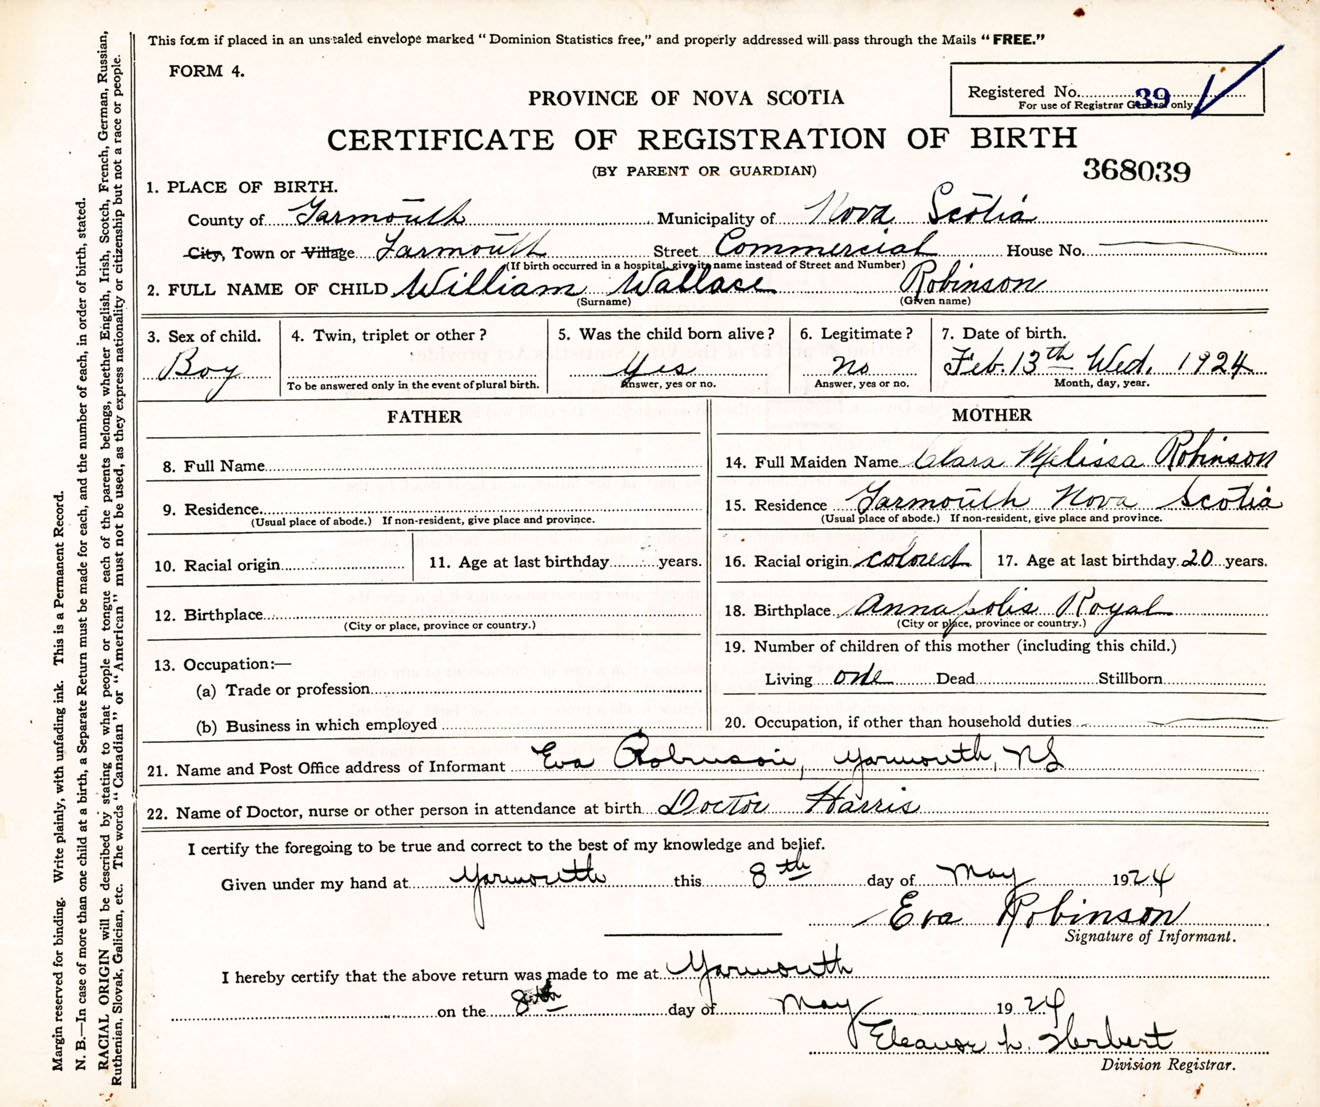 This form if placed in an unsealed envelope marked "Dominion Statistics free," and properly addressed will pass through the Mails "FREE."
FORM 4.
Registered No. 39
For use of Registrar General only
PROVINCE OF NOVA SCOTIA
CERTIFICATE OF REGISTRATION OF BIRTH
(BY PARENT OR GUARDIAN)
368039
1. PLACE OF BIRTH.
County of Yarmouth Municipality of Nova Scotia
City, Town or Village Yarmouth Street Commercial House No.
(If birth occurred in a hospital, give its name instead of Street and Number)
2. FULL NAME OF CHILD William Wallace Robinson
(Surname) (Given name)
3. Sex of child. 4. Twin, triplet or other? 5. Was the child born alive? 6. Legitimate? 7. Date of birth.
Boy yes no Feb. 13th Wed. 1924
To be answered only in the event of plural birth. Answer, yes or no. Answer, yes or no. Month, day, year.
FATHER
8. Full Name
9. Residence
(Usual place of abode.) If non-resident, give place and province.
10. Racial origin 11. Age at last birthday years.
12. Birthplace
(City or place, province or country.)
13. Occupation:—
(a) Trade or profession
(b) Business in which employed
MOTHER
14. Full Maiden Name Clara Melissa Robinson
15. Residence Yarmouth Nova Scotia
(Usual place of abode.) If non-resident, give place and province.
16. Racial origin colored 17. Age at last birthday 20 years.
18. Birthplace Annapolis Royal
(City or place, province or country.)
19. Number of children of this mother (including this child.)
Living one Dead Stillborn
20. Occupation, if other than household duties
21. Name and Post Office address of Informant Eva Robinson, Yarmouth, NS
22. Name of Doctor, nurse or other person in attendance at birth Doctor Harris
I certify the foregoing to be true and correct to the best of my knowledge and belief.
Given under my hand at Yarmouth this 8th day of May 1924
Eva Robinson
Signature of Informant.
I hereby certify that the above return was made to me at Yarmouth
on the 8th day of May 1924
Eleanor L. Herbert
Division Registrar.
Margin reserved for binding. Write plainly, with unfading ink. This is a Permanent Record.
N. B.—In case of more than one child at a birth, a Separate Return must be made for each, and the number of each, in order of birth, stated.
RACIAL ORIGIN will be described by stating to what people or tongue each of the parents belongs, whether English, Irish, Scotch, French, German, Russian,
Ruthenian, Slovak, Galician, etc. The words "Canadian" or "American" must not be used, as they express nationality or citizenship but not a race or people.